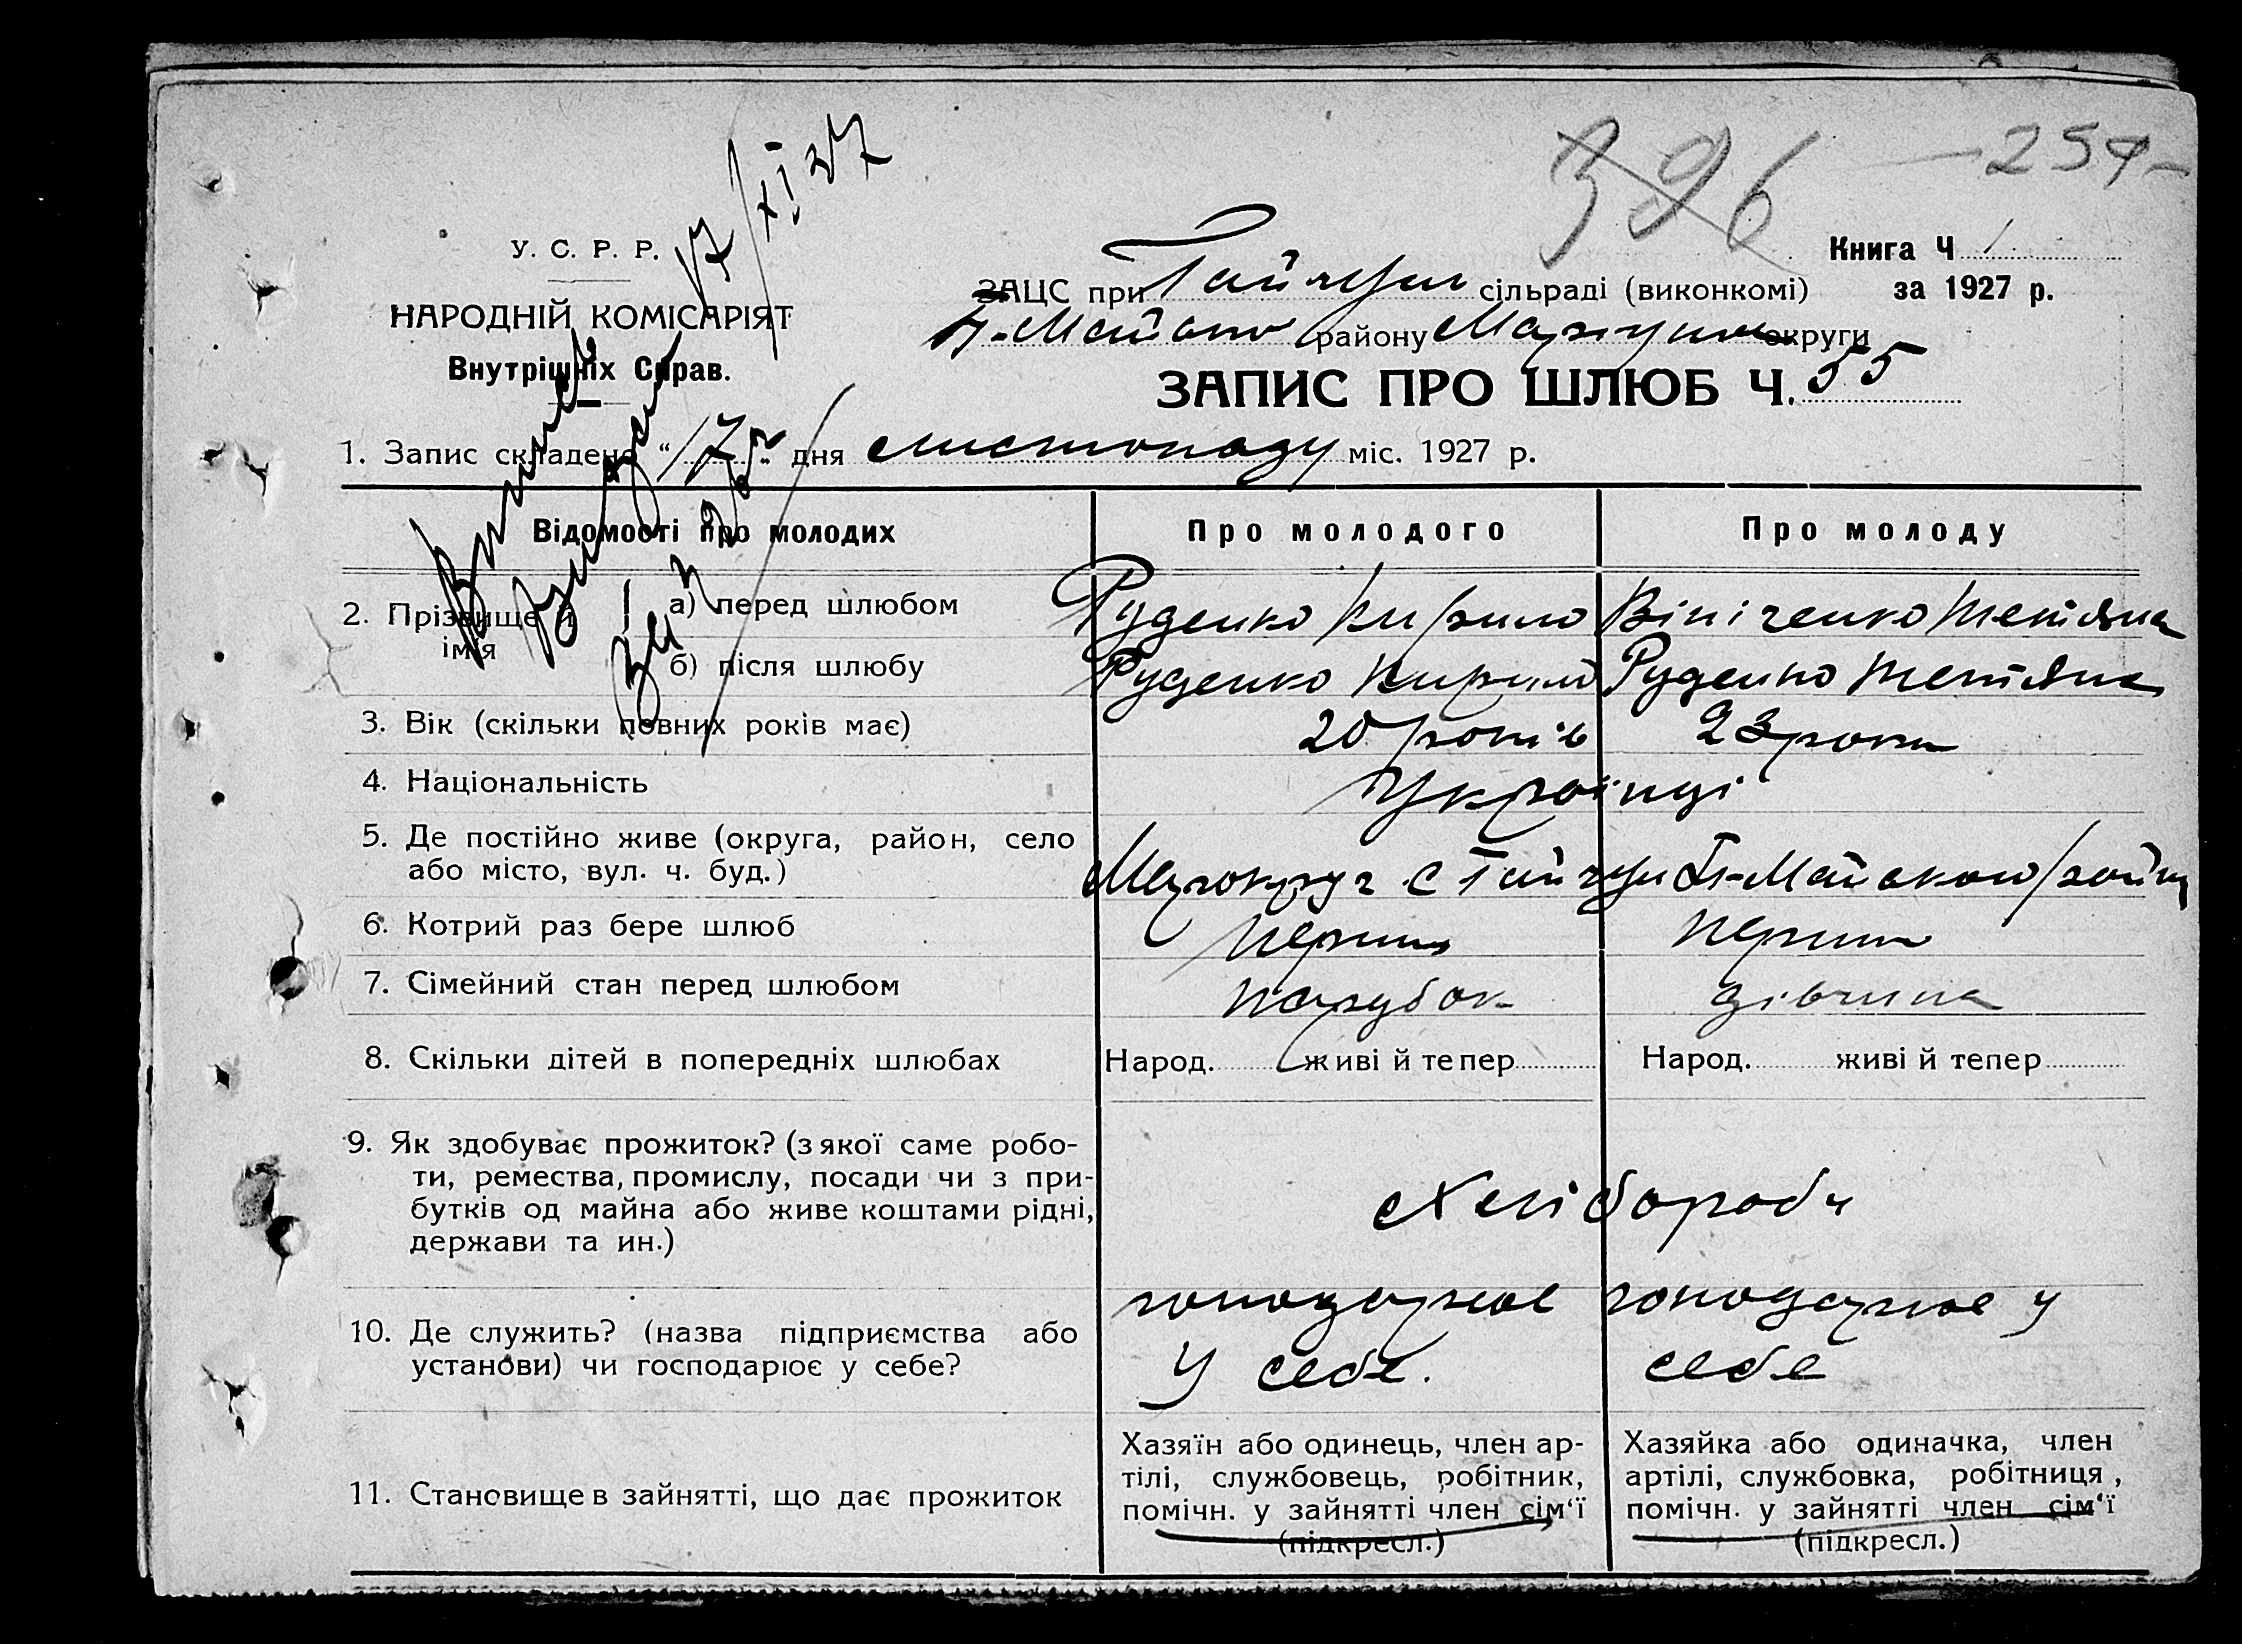 396 — 257 —
17/XI 27
У. С. Р. Р.
НАРОДНІЙ КОМІСАРІЯТ
Внутрішніх Справ.
Книга Ч 1
за 1927 р.
ЗАЦС при Гайчул сільраді (виконкомі)
району округи
ЗАПИС ПРО ШЛЮБ Ч. 55
1. Запис складено „17" дня листопаду міс. 1927 р.
Відомості про молодих Про молодого Про молоду
2. Прізвище й імія
а) перед шлюбом Руденко Кирило Вініченко Тетяна
б) після шлюбу Руденко Кирило Руденко Тетяна
3. Вік (скільки повних років має) 20 років 23 роки
4. Національність Українці
5. Де постійно живе (округа, район, село
або місто, вул. ч. буд.) с Гайчул
6. Котрий раз бере шлюб перший перший
7. Сімейний стан перед шлюбом парубок дівчина
8. Скільки дітей в попередніх шлюбах Народ. живі й тепер Народ. живі й тепер
9. Як здобуває прожиток? (з якої саме робо-
ти, ремества, промислу, посади чи з при-
бутків од майна або живе коштами рідні,
держави та ин.)
Хлібороби
10. Де служить? (назва підприємства або
установи) чи господарює у себе?
господарює у себе.
господарює у себе
11. Становище в зайнятті, що дає прожиток
Хазяїн або одинець, член ар-
тілі, службовець, робітник,
помічн. у зайнятті член сім'ї
(підкресл.)
Хазяйка або одиначка, член
артілі, службовка, робітниця,
помічн. у зайнятті член сім'ї
(підкресл.)